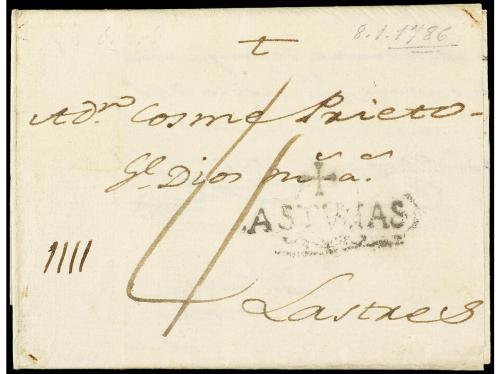 8.1.1786
A Dn Cosme Prieto
Gē Dios ms as
ASTURIAS
4
1111
Lastres